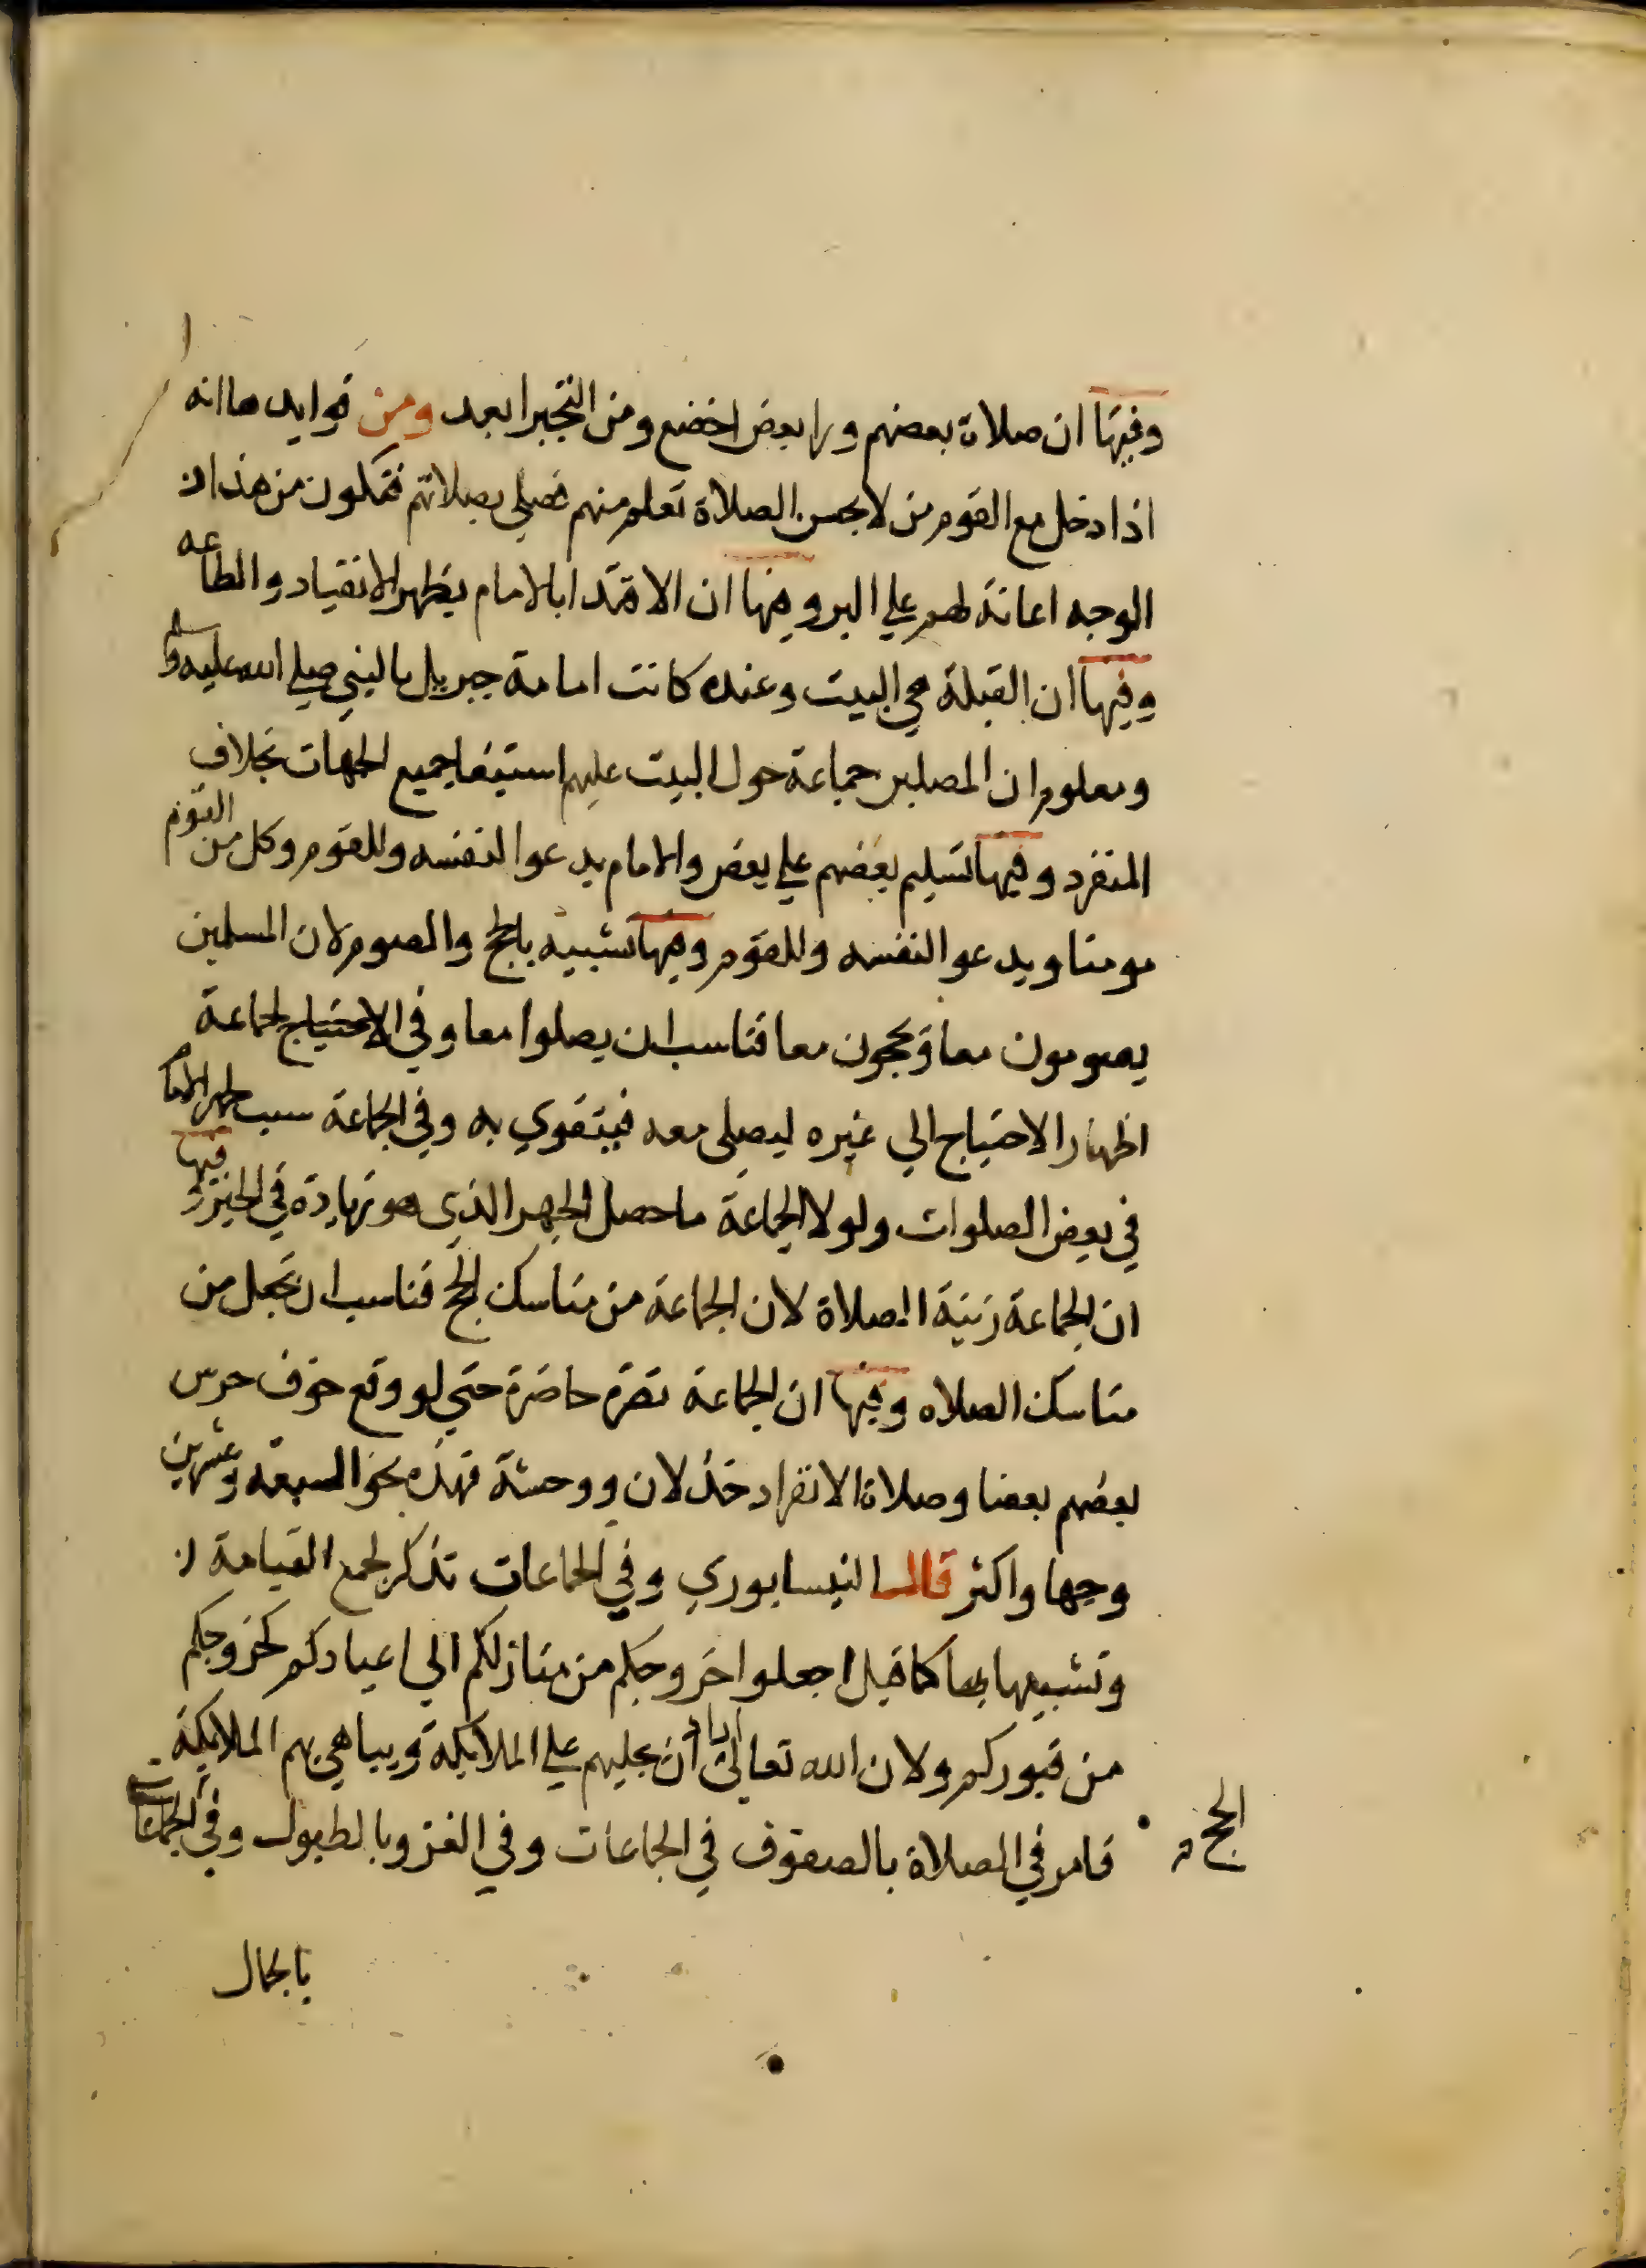 وفيها ان صلاة بعضهم ورا بعض اخضع ومن التجبر ابعد ومن فوايدها انه
اذا دخل مع القوم من لا يحسن الصلاة تعلم منهم فصلي بصلاتهم فتكون من هذا
الوجه اعانة لهم علي البر وفيها ان الاقتدا بالامام يظهر الانقياد والطاعه
وفيها ان القبلة هي البيت وعنده كانت امامة جبريل بالنبي صلي الله عليه وسلم
ومعلوم ان المصلين جماعة حول البيت عليهم استيفا جميع الجهات بخلاف
المنفرد وفيها تسليم بعضهم علي بعض والامام يدعوا لنفسه وللقوم وكل من القوم
مومنا ويدعوا لنفسه وللقوم وفيها تشبيه بالحج والصوم لان المسلمين
يصومون معا ويحجون معا فناسب ان يصلوا معا وفي الاحتياج لجماعة
اظهار الاحتياج الي غيره ليصلي معه فيتقوي به وفي الجماعة سبب لجهر الامام
في بعض الصلوات ولولا الجماعة ما حصل الجهر الذي هو زيادة في الخير وفيها
ان الجماعة زينة الصلاة لان الجماعة من مناسك الحج فناسب ان تجعل من
مناسك الصلاه وفيها ان الجماعة نصرة حاضرة حتي لو وقع خوف حرس
بعضهم بعضا وصلاة الانفراد خذلان ووحشة فهذه نحو السبعة وعشرين
وجها واكثر قال النيسابوري وفي الجماعات تذكر لجمع القيامة
وتشبيها بها كما قيل اجعلوا خروجكم من منازلكم الي اعيادكم كخروجكم
من قبوركم ولان الله تعالي اراد ان يجليهم علي الملايكة ويباهي بهم الملايكة
فامر في الصلاة بالصفوف في الجماعات وفي الغزو بالطبول وفي الجماعات
الحج
بالجمال